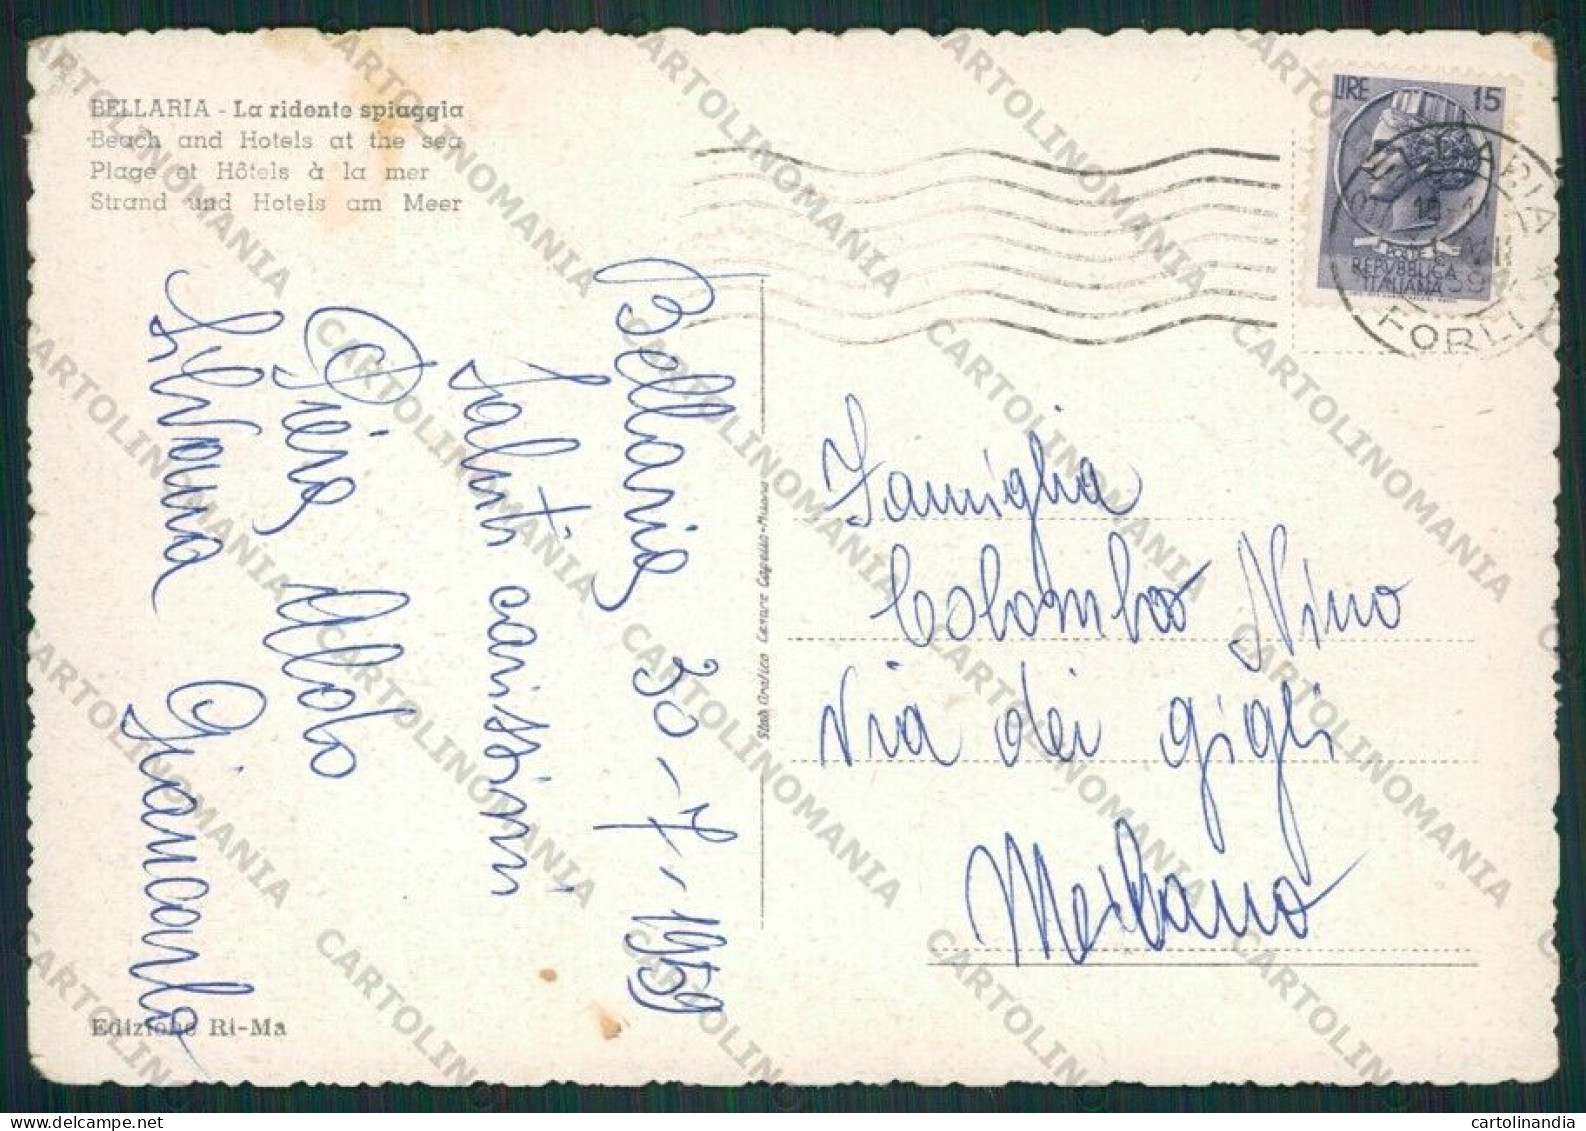 BELLARIA - La ridente spiaggia
Beach and Hotels at the sea
Plage et Hôtels à la mer
Strand und Hotels am Meer
LIRE 15
POSTE
REPVBBLICA
ITALIANA
BELLARIA
FORLI
Bellaria 30-7-1959
Saluti carissimi
Piera Aldo
Silvana Giancarlo
Edizione Ri-Ma
Stab. Grafico Cesare Capello-Milano
Famiglia
Colombo Nino
Via dei gigli
CARTOLINOMANIA
cartolinandia